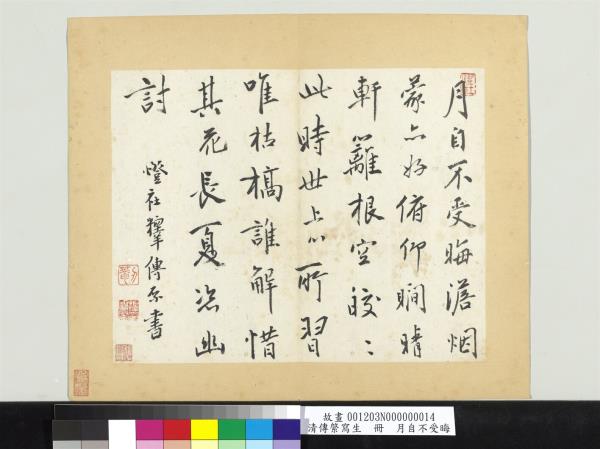 月自不受晦澹烟
蒙亦好俯仰瞷晴
軒籬根空皎〻
此時世上心所習
唯枯槁誰解惜
其花長夏恣幽
討
燈社傳綮書
故畫 001203N000000014
清傳綮寫生 冊 月自不受晦